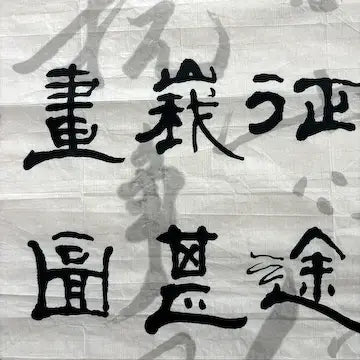 征途
峩甚
畫圖